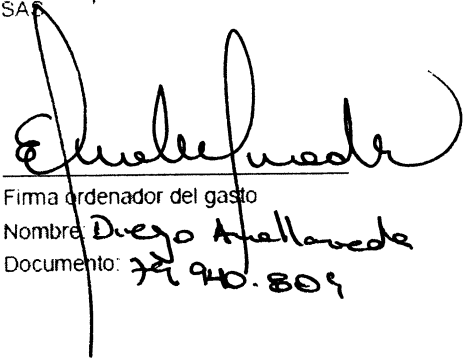 SAS
Firma ordenador del gasto
Nombre: Diego Avellaneda
Documento: 79.940.809